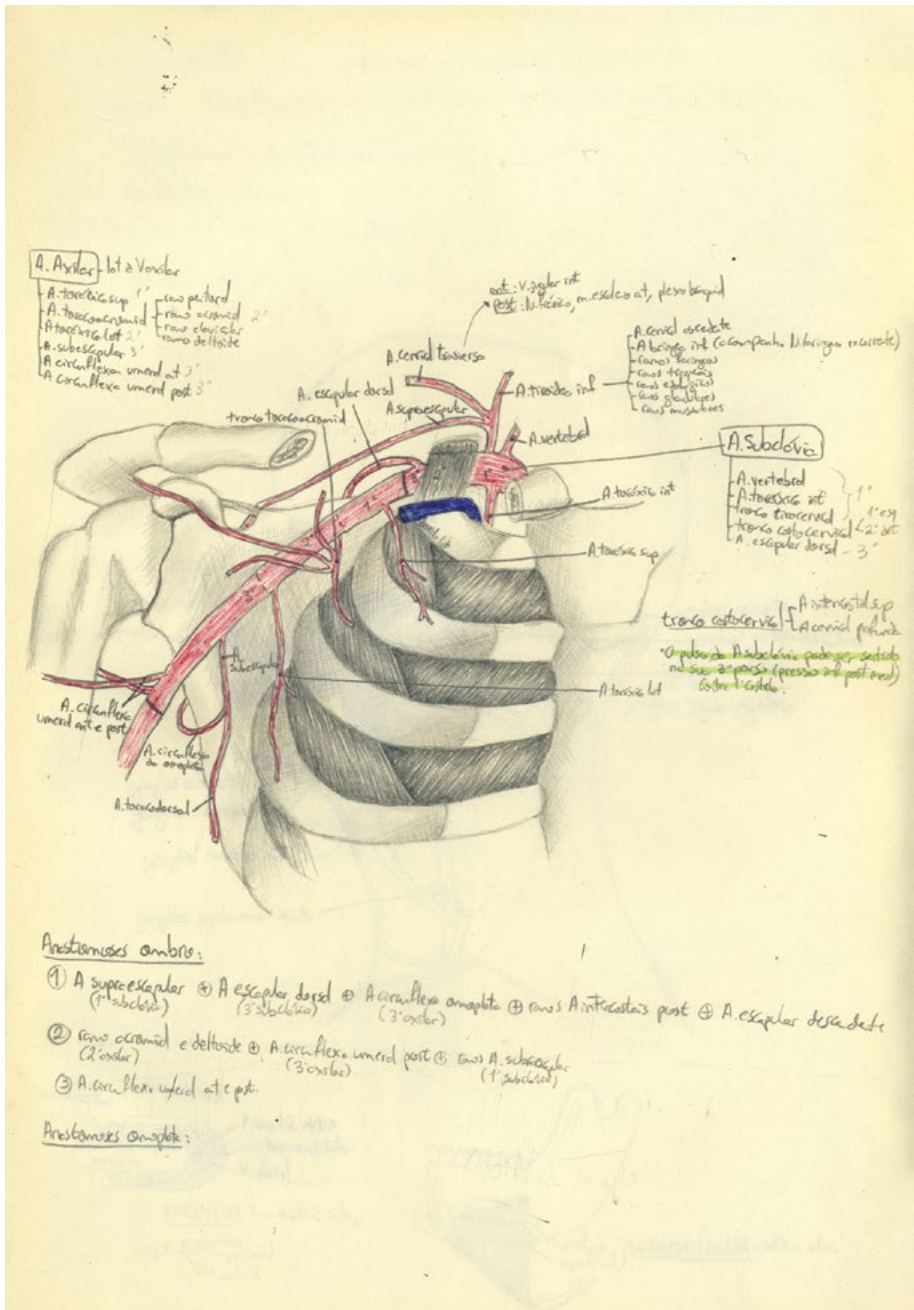 A. Axilar - lat à V axilar
A. torácica sup 1ª
A. toracoacromial
ramo peitoral
ramo acromial 2ª
ramo clavicular
ramo deltoide
A torácica lat 2ª
A. subescapular 3ª
A circunflexa umeral ant 3ª
A circunflexa umeral post 3ª
ant: V. jugular int
post: N. frénico, m. escaleno ant, plexo braquial
A. cervical transversa
A. escapular dorsal
A supraescapular
tronco toracoacromial
A. tiroidea inf
A. cervical ascendente
A laríngea inf (acompanha N laríngeo recorrente)
ramos faríngeos
ramos traqueais
ramos esofágicos
ramos glandulares
ramos musculares
A. vertebral
A. Subclávia
A. vertebral
A. torácica int
tronco tirocervical
1ª
tronco costocervical
1ª esq
2ª dit
A. escapular dorsal - 3ª
A. torácica int
A. torácica sup
tronco costocervical
A intercostal sup
A cervical profunda
*O pulso da A subclávia pode ser sentido
na sua 3ª porção (pressão inf post med)
contra 1ª costela.
A. subescapular
A torácica lat
A. circunflexa
umeral ant e post
A. circunflexa
da omoplata
A. toracodorsal
Anastomoses ombro:
① A supraescapular ⊕ A escapular dorsal ⊕ A circunflexa omoplata ⊕ ramos A intercostais post ⊕ A. escapular descendente
(1ª subclávia) (3ª subclávia) (3ª axilar)
② ramo acromial e deltoide ⊕ A. circunflexa umeral post ⊕ ramos A.
(2ª axilar) (3ª axilar) (1ª subclávia)
③ A. circunflexa umeral ant e post.
Anastomoses omoplata: